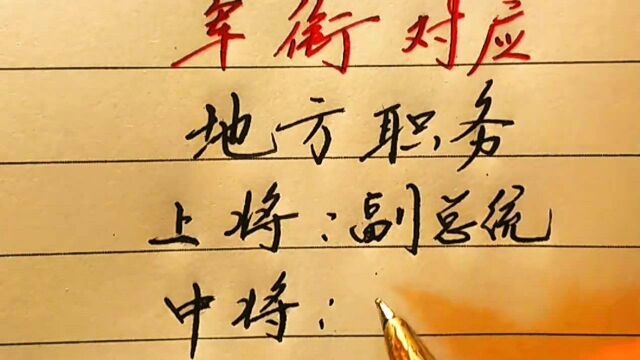 军衔对应
地方职务
上将：副总统
中将：